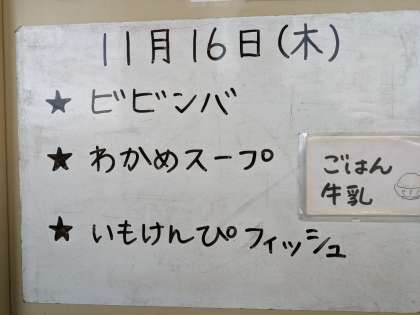 11月16日(木)
★ ビビンバ
★ わかめスープ
★ いもけんぴフィッシュ
ごはん
牛乳